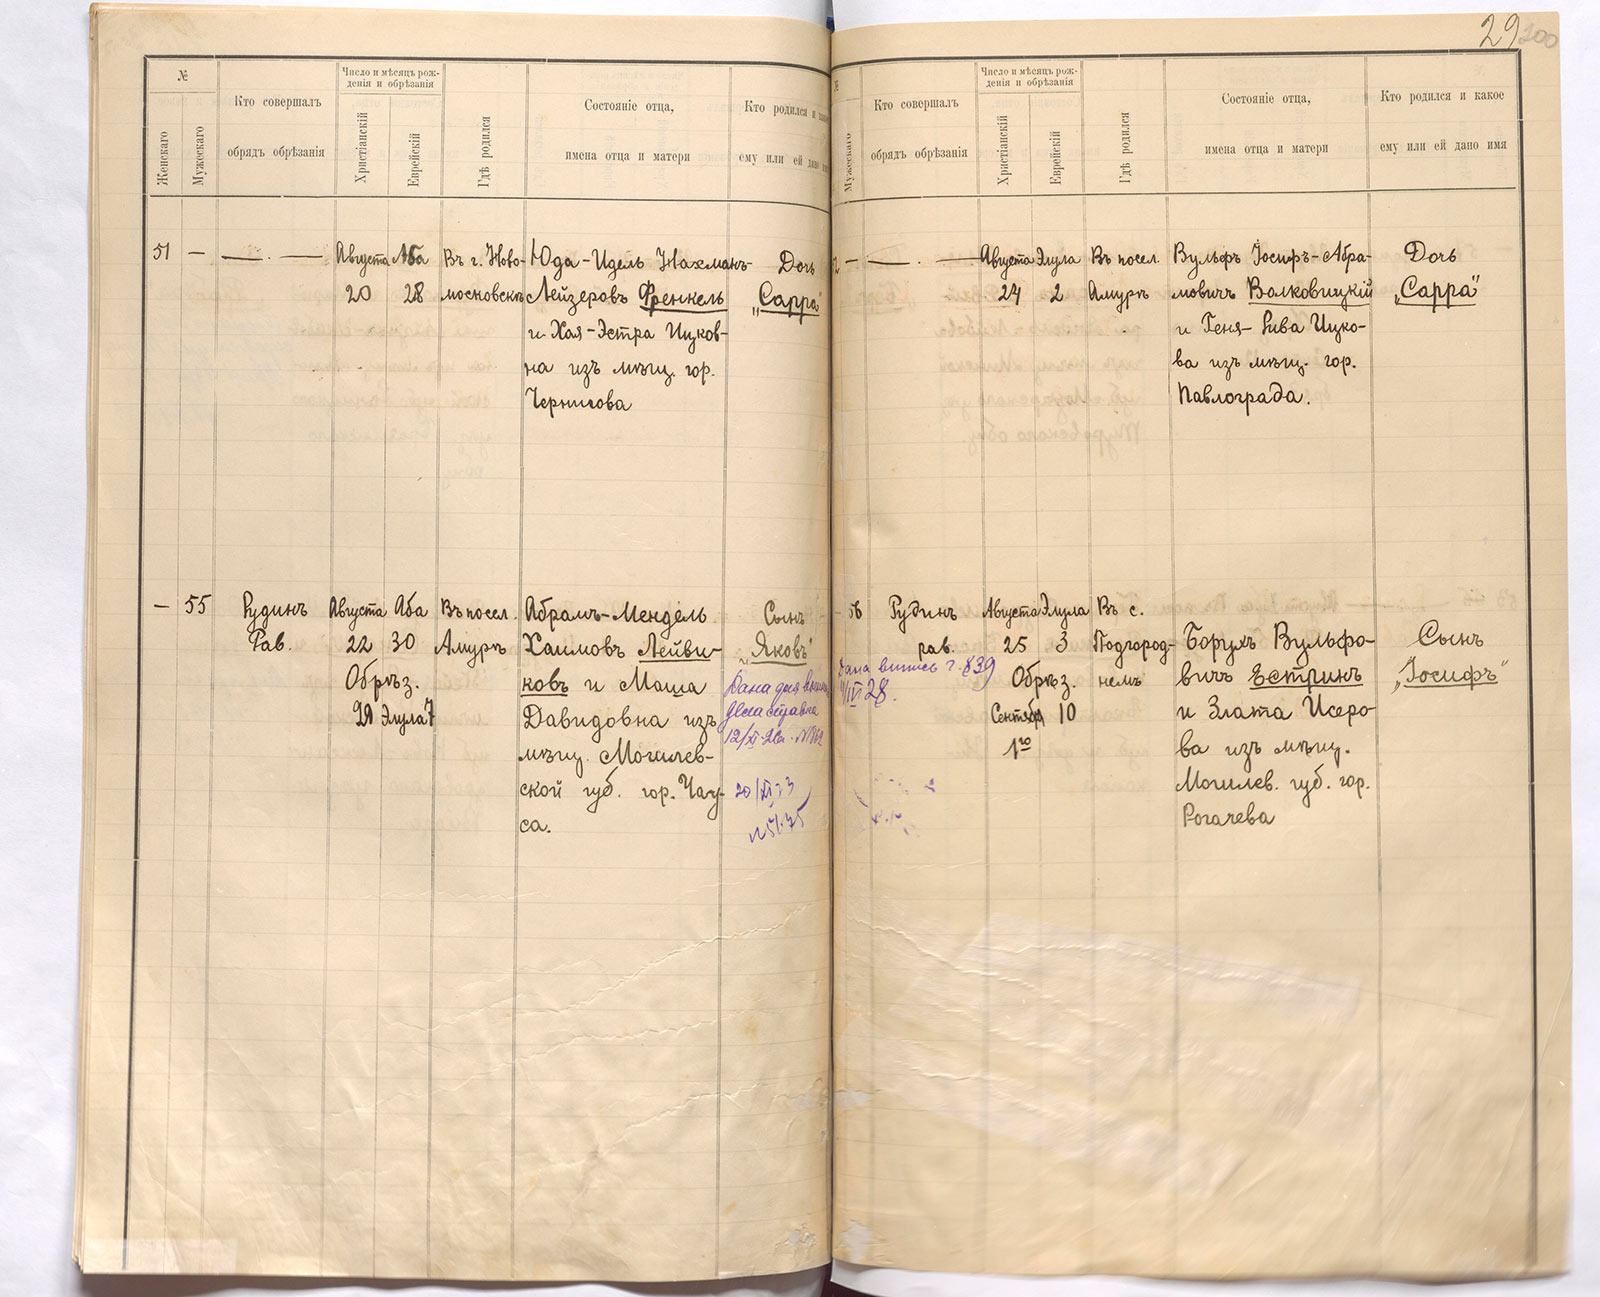 29
200
№
Женскаго
Мужескаго
Кто совершалъ
обрядъ обрѣзанія
Число и мѣсяцъ рож-
денія и обрѣзанія
Христіанскій
Еврейскій
Гдѣ родился
Состояніе отца,
имена отца и матери
Кто родился и
ему или ей дано
51 — — . —
Августа Аба
20 28
Въ г. Ново-
московскѣ
Юда-Идель Нахманъ-
Лейзеровъ Френкель
и Хая-Эстра Ицков-
на изъ мѣщ. гор.
Чернигова
Дочь
„Сарра"
— 55
Рудинъ
Рав.
Августа Аба
22 30
Обрѣз.
29 Элула 7
Въ посел.
Амурѣ
Абрамъ-Мендель
Хаимовъ Лейви-
ковъ и Маша
Давидовна изъ
мѣщ. Могилев-
ской губ. гор. Чау-
са.
Сынъ
„Яковъ"
Дана для
справка
20/XI 33
№
Мужескаго
Кто совершалъ
обрядъ обрѣзанія
Число и мѣсяцъ рож-
денія и обрѣзанія
Христіанскій
Еврейскій
Гдѣ родился
Состояніе отца,
имена отца и матери
Кто родился и какое
ему или ей дано имя
2 — — . —
Августа Элула
24 2
Въ посел.
Амурѣ
Вульфъ Іосифъ-Абра-
мовичъ Волковицкій
и Геня-Рива Ицко-
ва изъ мѣщ. гор.
Павлограда.
Дочь
„Сарра"
56
Рудинъ
рав.
Дана випись г. 839
28.
Августа Элула
25 3
Обрѣз.
Сентября 10
1го
Въ с.
Подгород-
немъ
Борухъ Вульфо-
вичъ Естринъ
и Злата Исеро-
ва изъ мѣщ.
Могилев. губ. гор.
Рогачева
Сынъ
„Іосифъ"